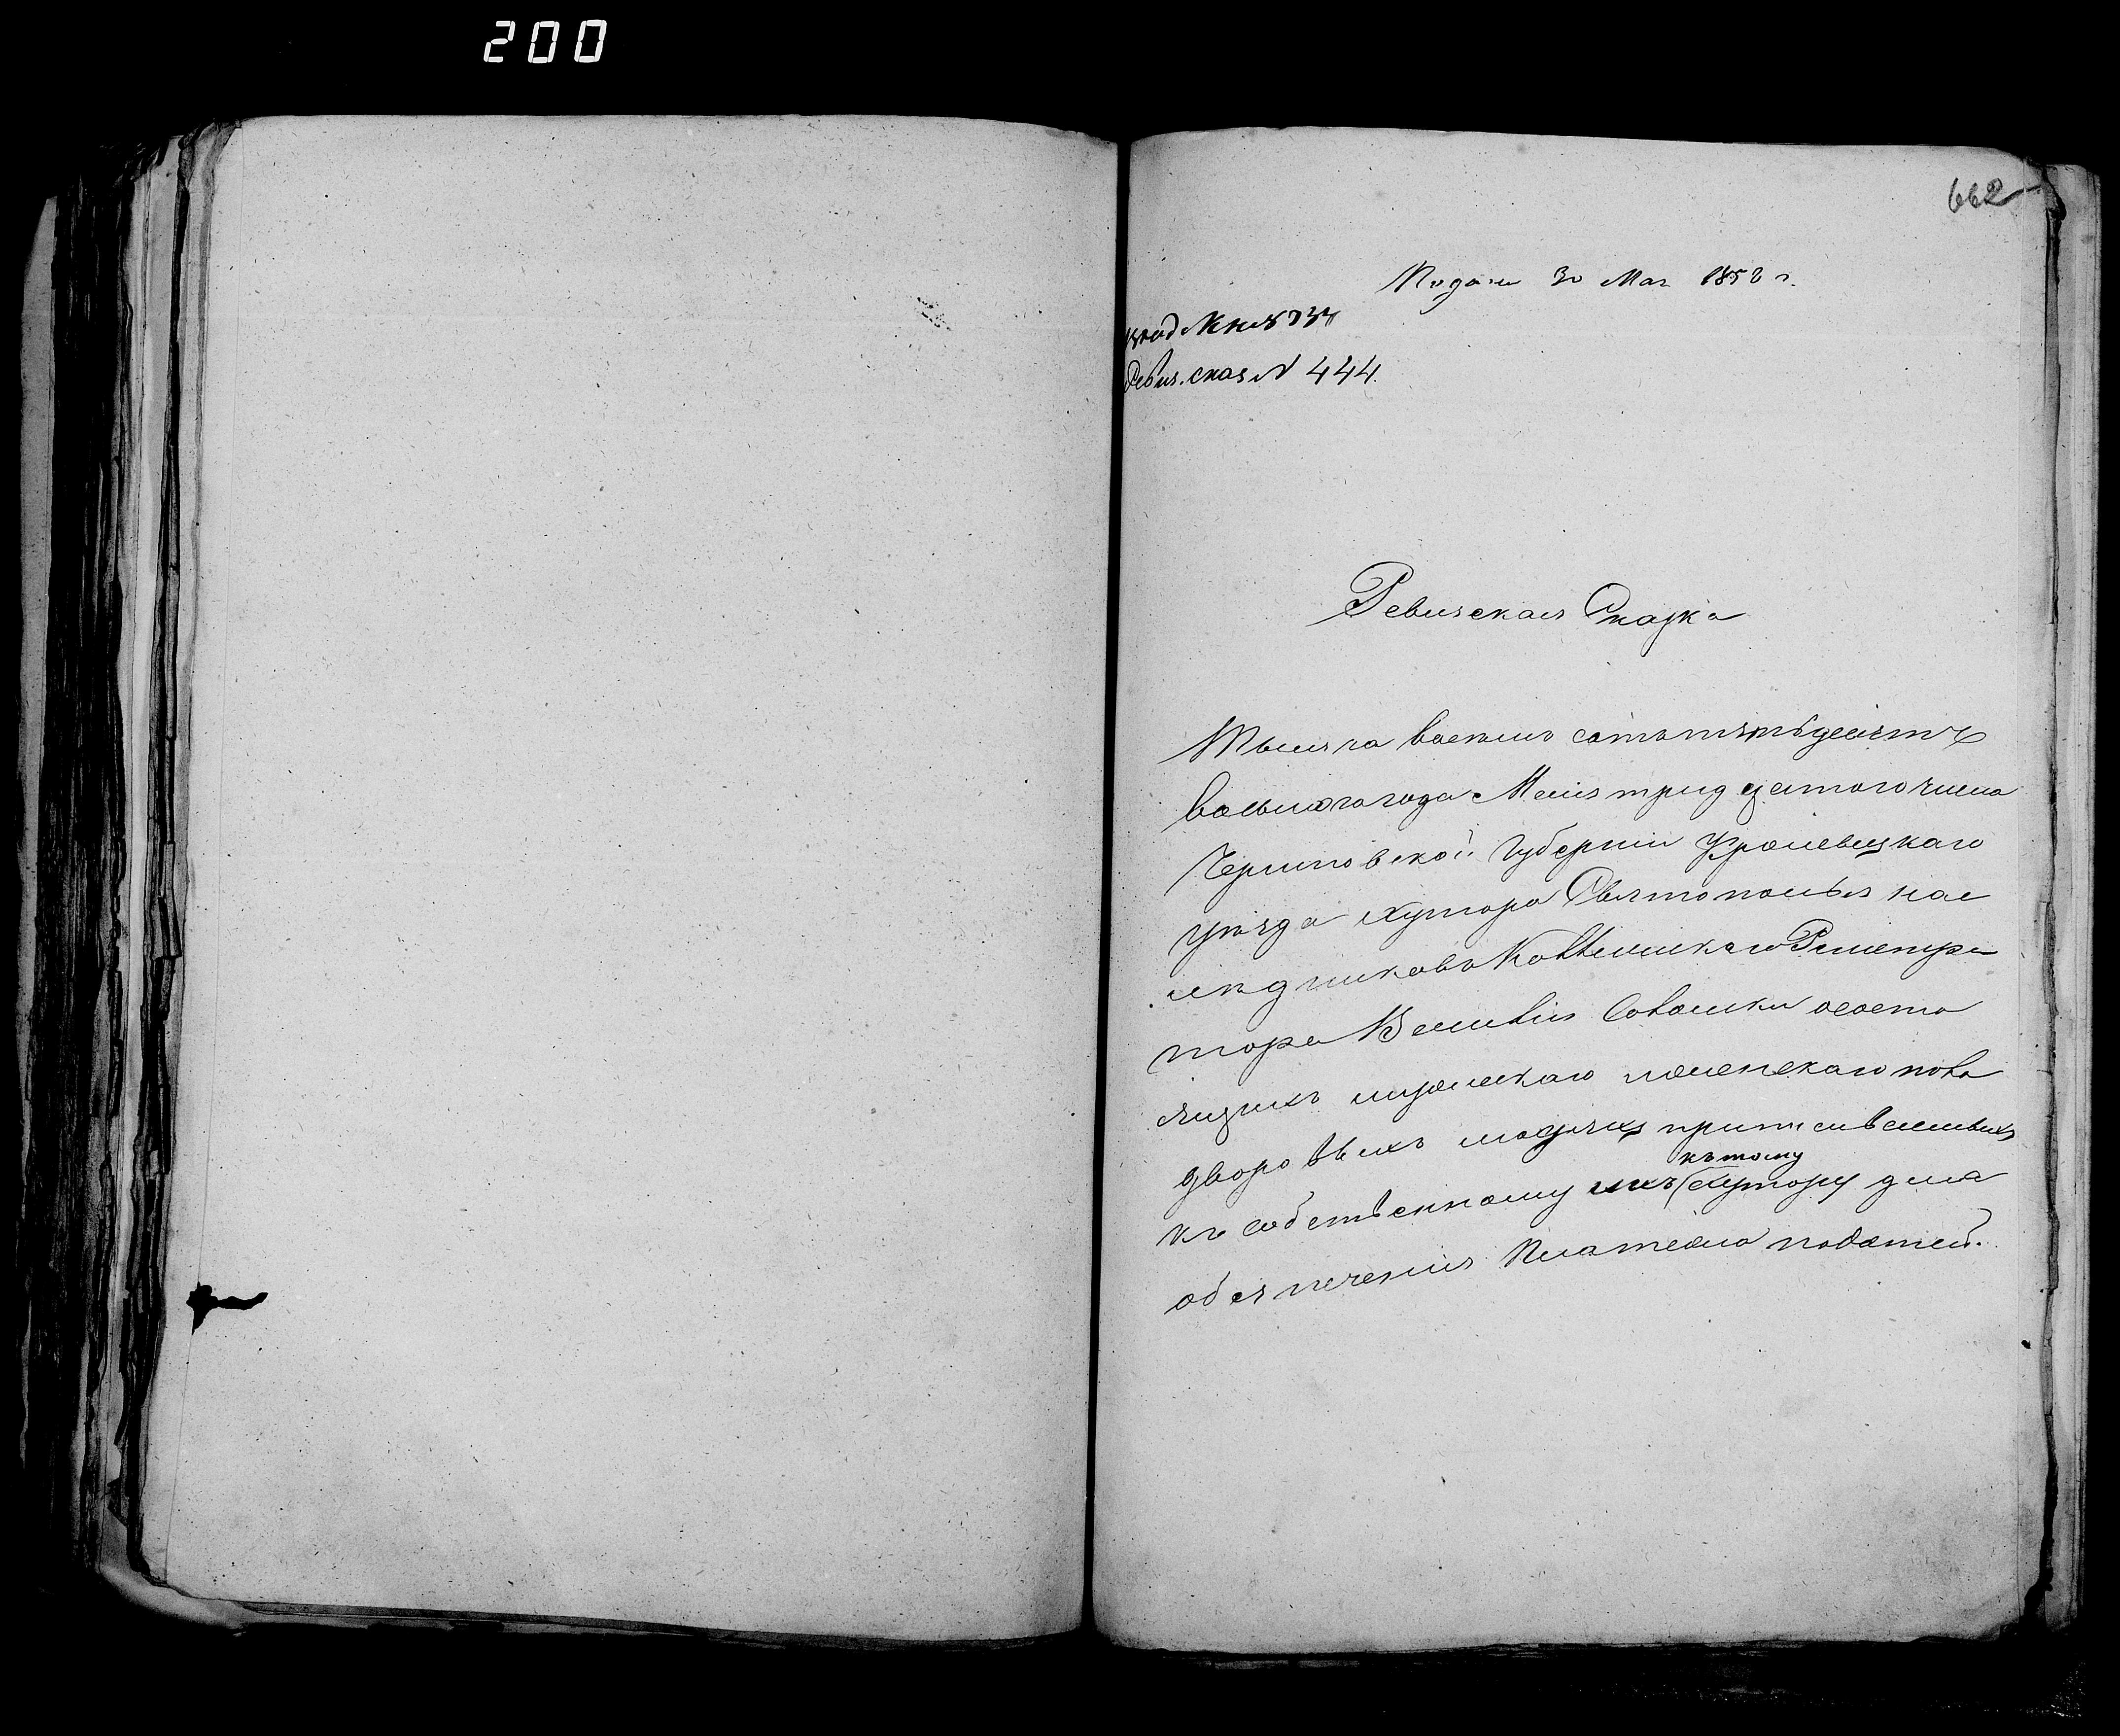 200
662
Подана 30 Мая 1858 г.
Ревиз. сказ. N 444.
Ревизская Сказка
Тысяча восемь сотъ пятьдесятъ
восьмого года Мая тридцатого числа
Черниговской Губерніи Кролевецкаго
уѣзда Хутора Святополья нас
лѣдниковъ Коллежскаго Регистра
тора Василія Савацки о состо
ящихъ мужескаго и женскаго пола
дворовыхъ людяхъ приписываемыхъ
къ тому
къ собственному ихъ хутору для
обезпеченія Платежа податей.